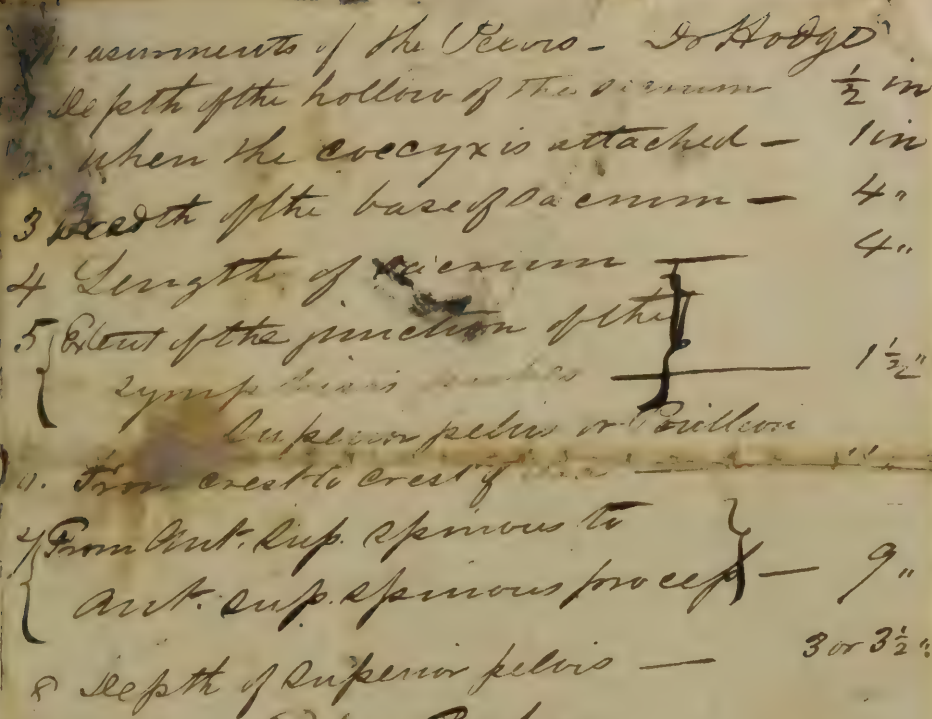 Measurments of the Pelvis - Dr Hodge
Depth of the hollow of the ½ in
2. when the coccyx is attached - 1 in
3 Breadth of the base of Sacrum - 4"
4 Length of Sacrum - 4"
5 Extent of the junction of the
symphisis pubes - 1½"
Superior pelvis or
From crest to crest of
7 From Ant. Sup. Spinous to
Ant. sup. spinous process - 9"
8 Depth of Superior pelvis - 3 or 3½"